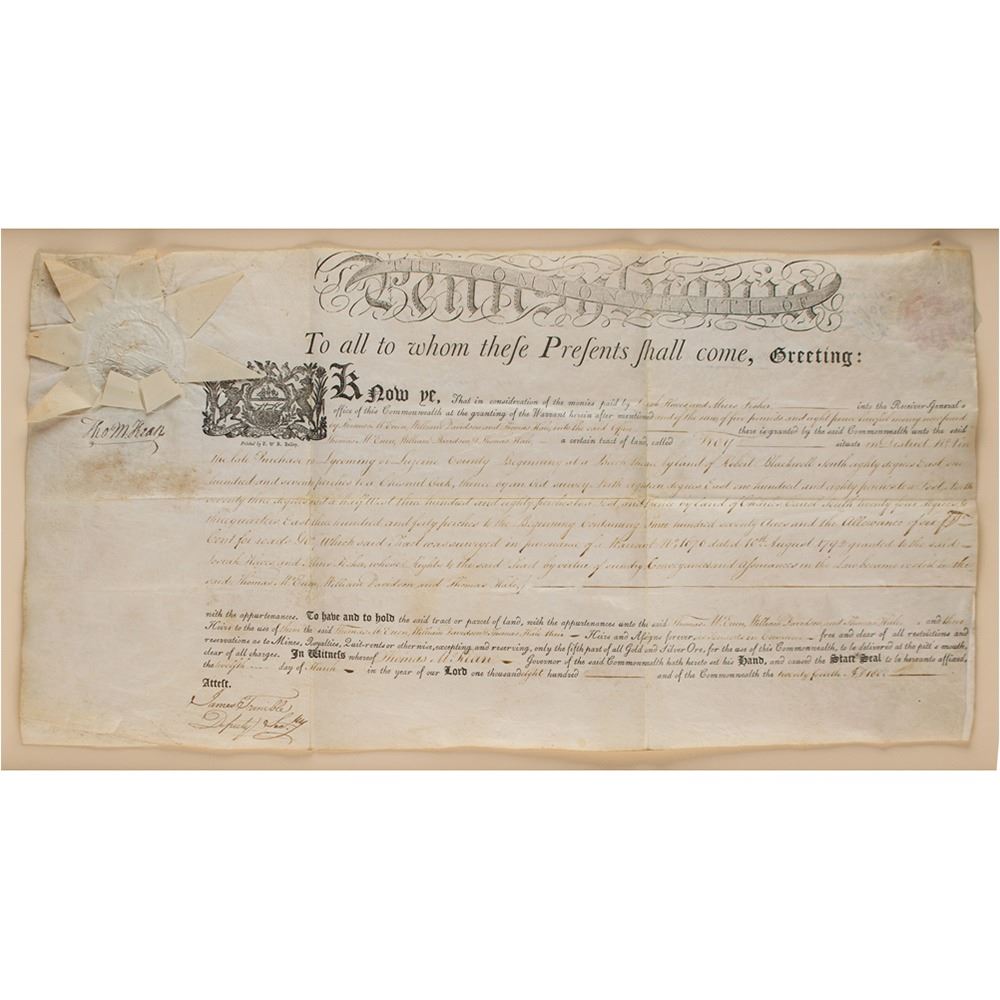 THE COMMONWEALTH OF
Pennsylvania
To all to whom theſe Preſents ſhall come, Greeting:
Know ye, That in consideration of the monies paid by and into the Receiver-General's
office of this Commonwealth at the granting of the Warrant herein after mentioned and of the sum of five pounds and eight
by Thomas McEuen, William Davidson and Thomas Hale, into the said Office there is granted by the said Commonwealth unto the said
Thomas McEuen, William Davidson & Thomas Hale a certain tract of land, called Troy situate in District No
the late Purchase Lycoming or Luzerne County Beginning at a Beech thence by land of Robert Blackwell South eighty degrees East one
hundred and seven perches to a Chesnut Oak, thence by an Old survey North eighteen degrees East one hundred and eighty perches to a Post, North
seventy nine degrees West three hundred and eighty perches to a Post and by land of South twenty four degrees
three quarters East three hundred and forty perches to the Beginning Containing three hundred seventy Acres and the Allowance of six ₱
Cent for roads &c Which said Tract was surveyed in pursuance of a Warrant No 1670 dated 10th August 1792 granted to the said
and Fisher, whose Right to the said Tract by virtue of sundry Conveyances and Assurances in the Law became vested in the
said Thomas McEuen, William Davidson and Thomas Hale
with the appurtenances. To have and to hold the said tract or parcel of land, with the appurtenances unto the said Thomas McEuen, William Davidson, and Thomas Hale, and their
Heirs to the use of them the said Thomas McEuen, William Davidson & Thomas Hale their Heirs and Assigns forever, as tenants in Common free and clear of all restrictions and
reservations as to Mines, Royalties, Quit-rents or otherwise, excepting and reserving, only the fifth part of all Gold and Silver Ore, for the use of this Commonwealth, to be delivered at the pit's mouth,
clear of all charges. In Witness whereof Thomas McKean Governor of the said Commonwealth hath hereto set his Hand, and caused the State Seal to be hereunto affixed,
the twelfth day of March in the year of our Lord one thousand eight hundred and of the Commonwealth the twenty fourth
Attest.
James Trimble
Deputy Secry
Tho M:Kean
Printed by F. & R. Bailey